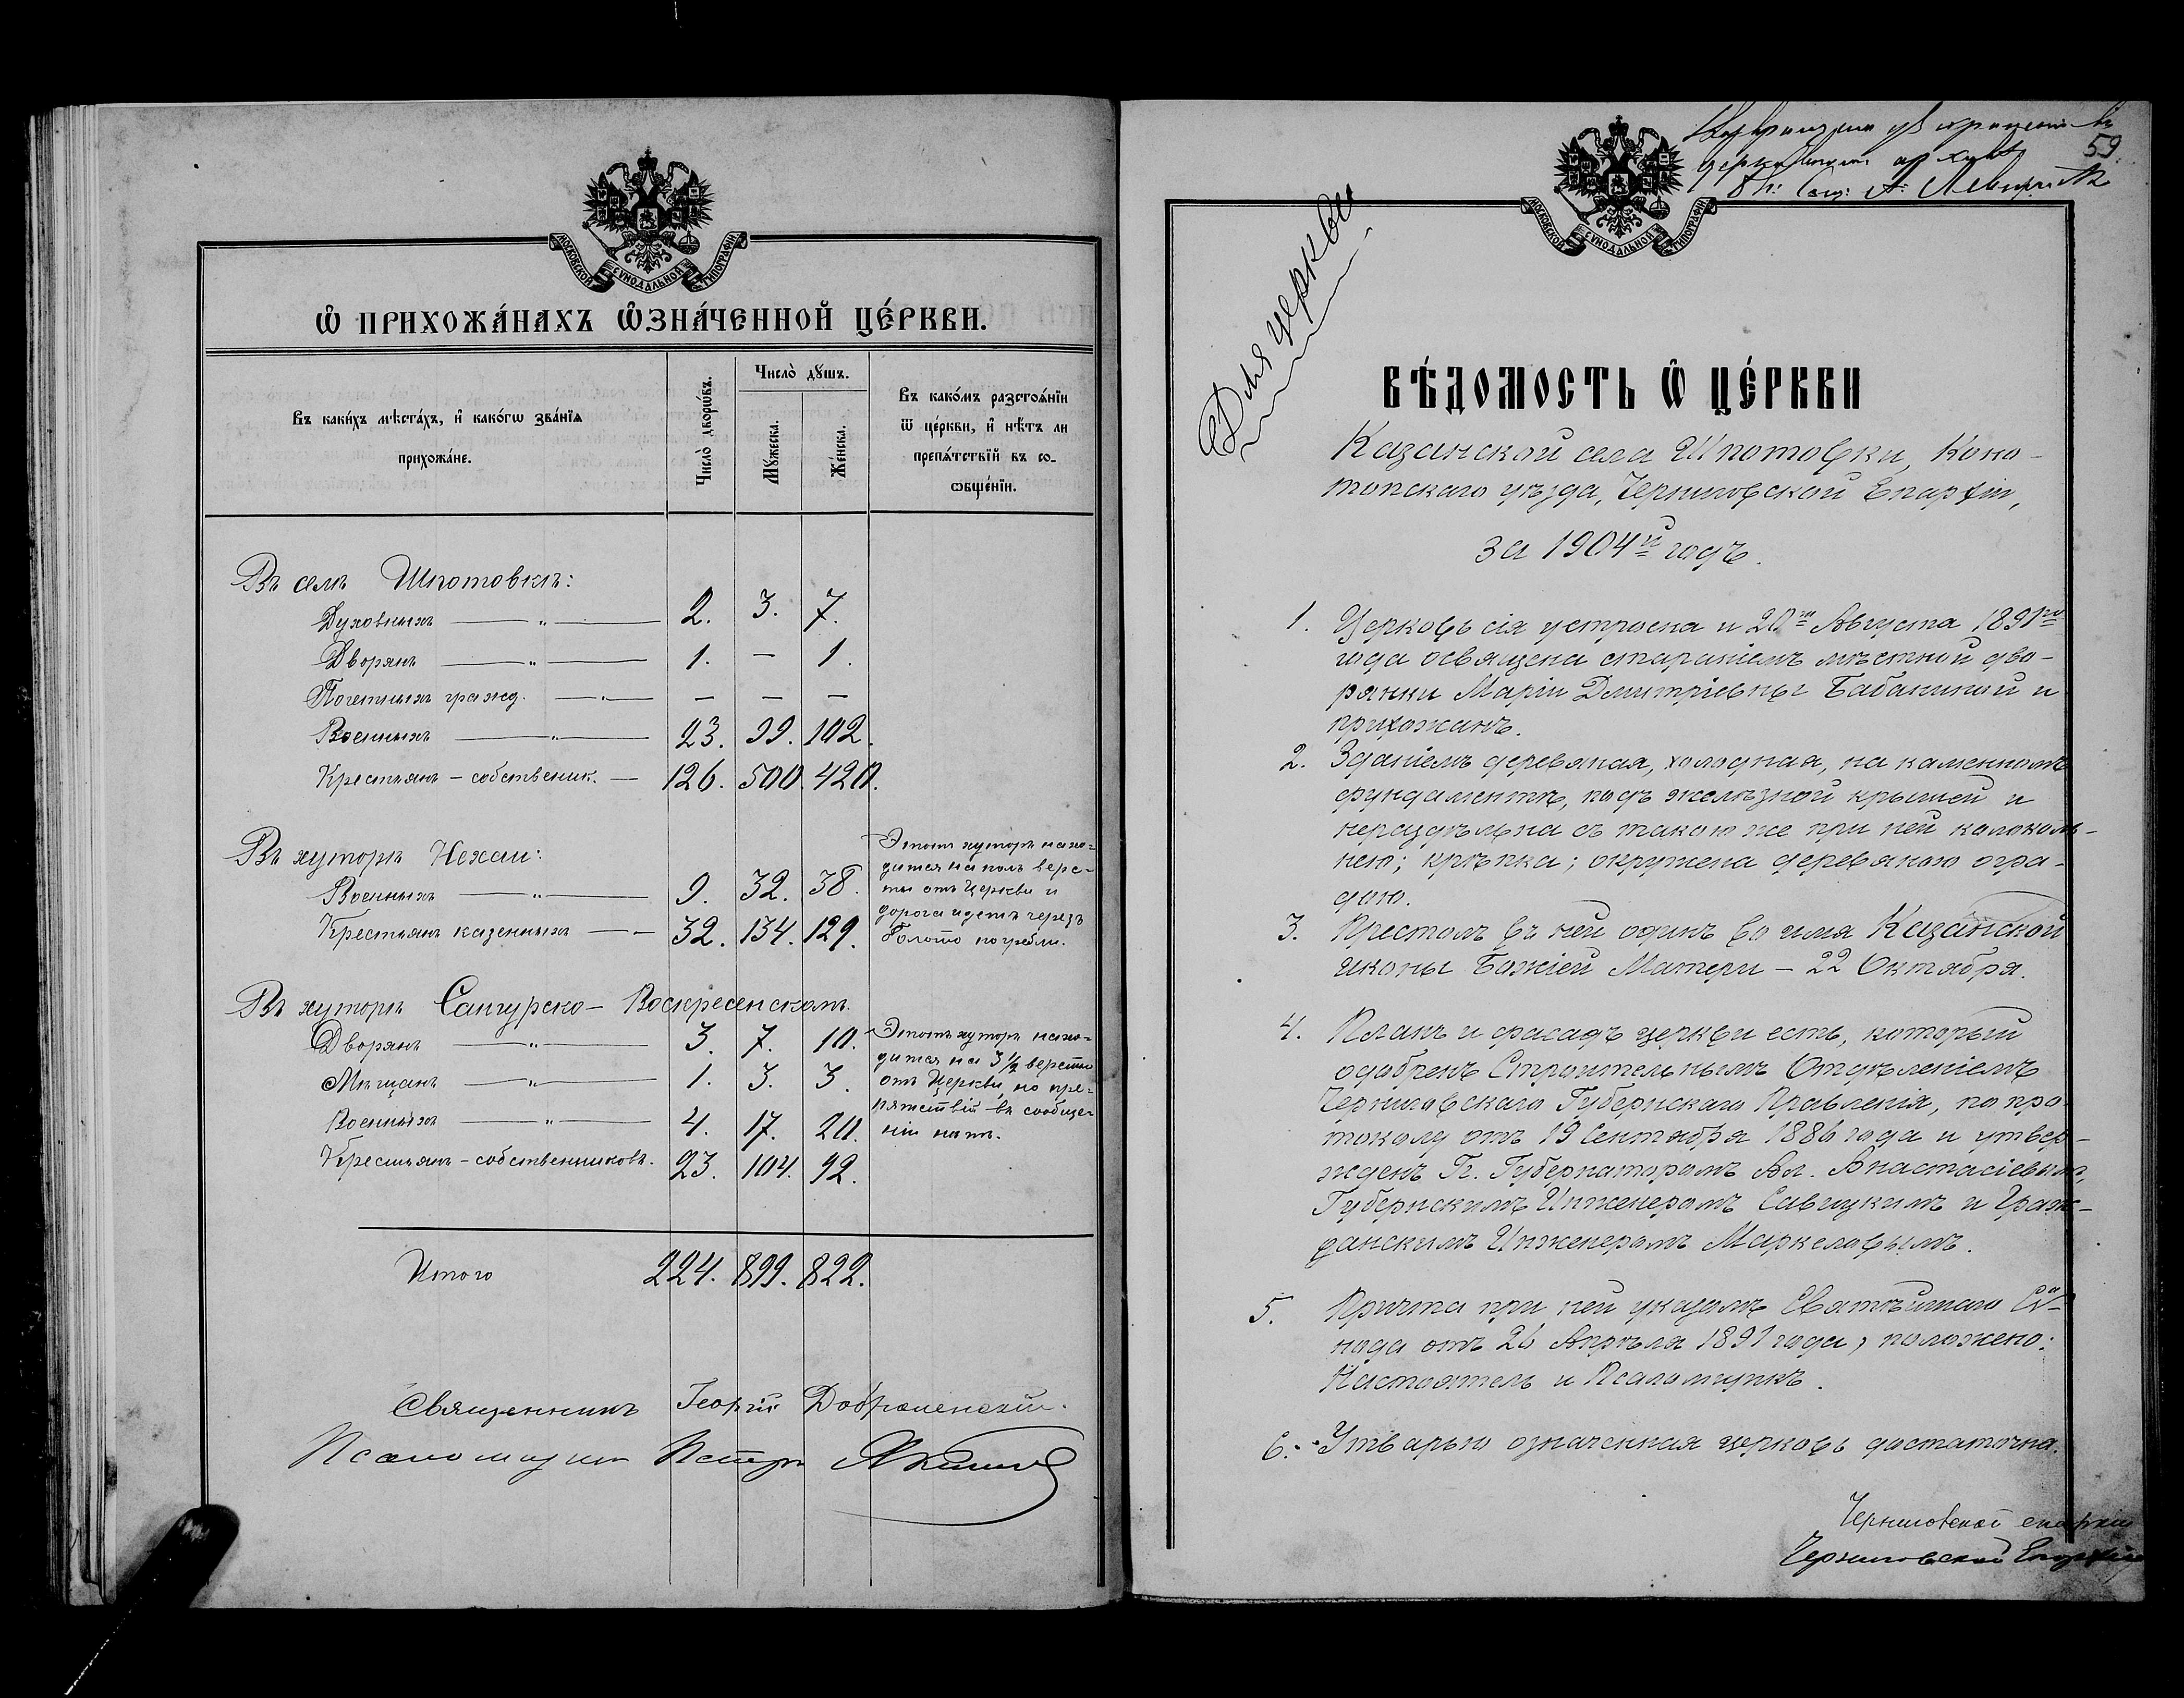 МОСКОВСКОЙ СѴНОДАЛЬНОЙ ТИПОГРАФІИ
Ѽ ПРИХОЖА́НАХЪ Ѽ҆ЗНА́ЧЕННОЙ ЦЕ́РКВИ.
Въ каки́хъ мѣста́хъ, и҆ како́гѡ зва́нїѧ прихожа́не.
Число̀ дворѡ́въ.
Число̀ дꙋ́шъ.
Мꙋ́жеска.
Же́нска.
Въ како́мъ разстоѧ́нїи
ѿ це́ркви, и҆ нѣ́тъ ли
препѧ́тствїй въ со-
ѡбще́нїи.
Въ селѣ Шпотовкѣ:
Духовныхъ — „ — 2. 3. 7.
Дворянъ — „ — 1. — 1.
Почетныхъ гражд. — „ — — — —
Военныхъ — „ — 23. 99. 102.
Крестьянъ – собственник. — 126. 500. 420.
Въ хуторѣ Нехаи:
Военныхъ — „ — 9. 32. 38.
Крестьянъ казенныхъ — — 32. 134. 129.
Этотъ хуторъ нахо=
дится на полъ верс=
ты отъ Церкви и
дорога идетъ черезъ
болото по гребли.
Въ хуторѣ Сангурско – Воскресенскомъ.
Дворянъ — „ — 3. 7. 10.
Мѣщанъ — „ — 1. 3. 3.
Военныхъ — „ — 4. 17. 20.
Крестьянъ – собственниковъ. 23. 104. 92.
Этотъ хуторъ нахо=
дится на 3 ½ версты
отъ Церкви, но пре=
пятствій въ сообще=
ніи нѣтъ.
Итого 224. 899. 822.
Священникъ Георгій
Псаломщикъ Петръ
59.
Для церкви
МОСКОВСКОЙ СѴНОДАЛЬНОЙ ТИПОГРАФІИ
ВѢ́ДОМОСТЬ Ѽ ЦЕ́РКВИ
Казанской села Шпотовки, Коно-
топскаго уѣзда, Черниговской Епархіи,
за 1904й годъ.
1. Церковь сія устроена и 20го Августа 1891го
года освящена стараніемъ мѣстной дво-
рянки Маріи Дмитріевны Бабаниной и
прихожанъ.
2. Зданіемъ деревяная, холодная, на каменномъ
фундаментѣ, подъ желѣзной крышей и
нераздѣльна съ такою же при ней колоколь-
нею; крѣпка; окружена деревяною огра-
дою.
3. Престолъ въ ней одинъ во имя Казанской
иконы Божіей Матери – 22 Октября.
4. Планъ и фасадъ церкви есть, который
одобренъ Строительнымъ Отдѣленіемъ
Черниговскаго Губернскаго Правленія, по про-
токолу отъ 19 Сентября 1886 года и утвер-
жденъ Гг. Губернаторомъ Ал. Анастасіевымъ,
Губернскимъ Инженеромъ Савицкимъ и Граж-
данскимъ Инженеромъ Маркеловымъ.
5. Причта при ней указомъ Святѣйшаго Си-
нода отъ 26 Апрѣля 1891 года, положено:
Настоятель и Псаломщикъ.
6. Утварью означенная церковь достаточна.
Черниговской епархіи
Черниговской Епархіи